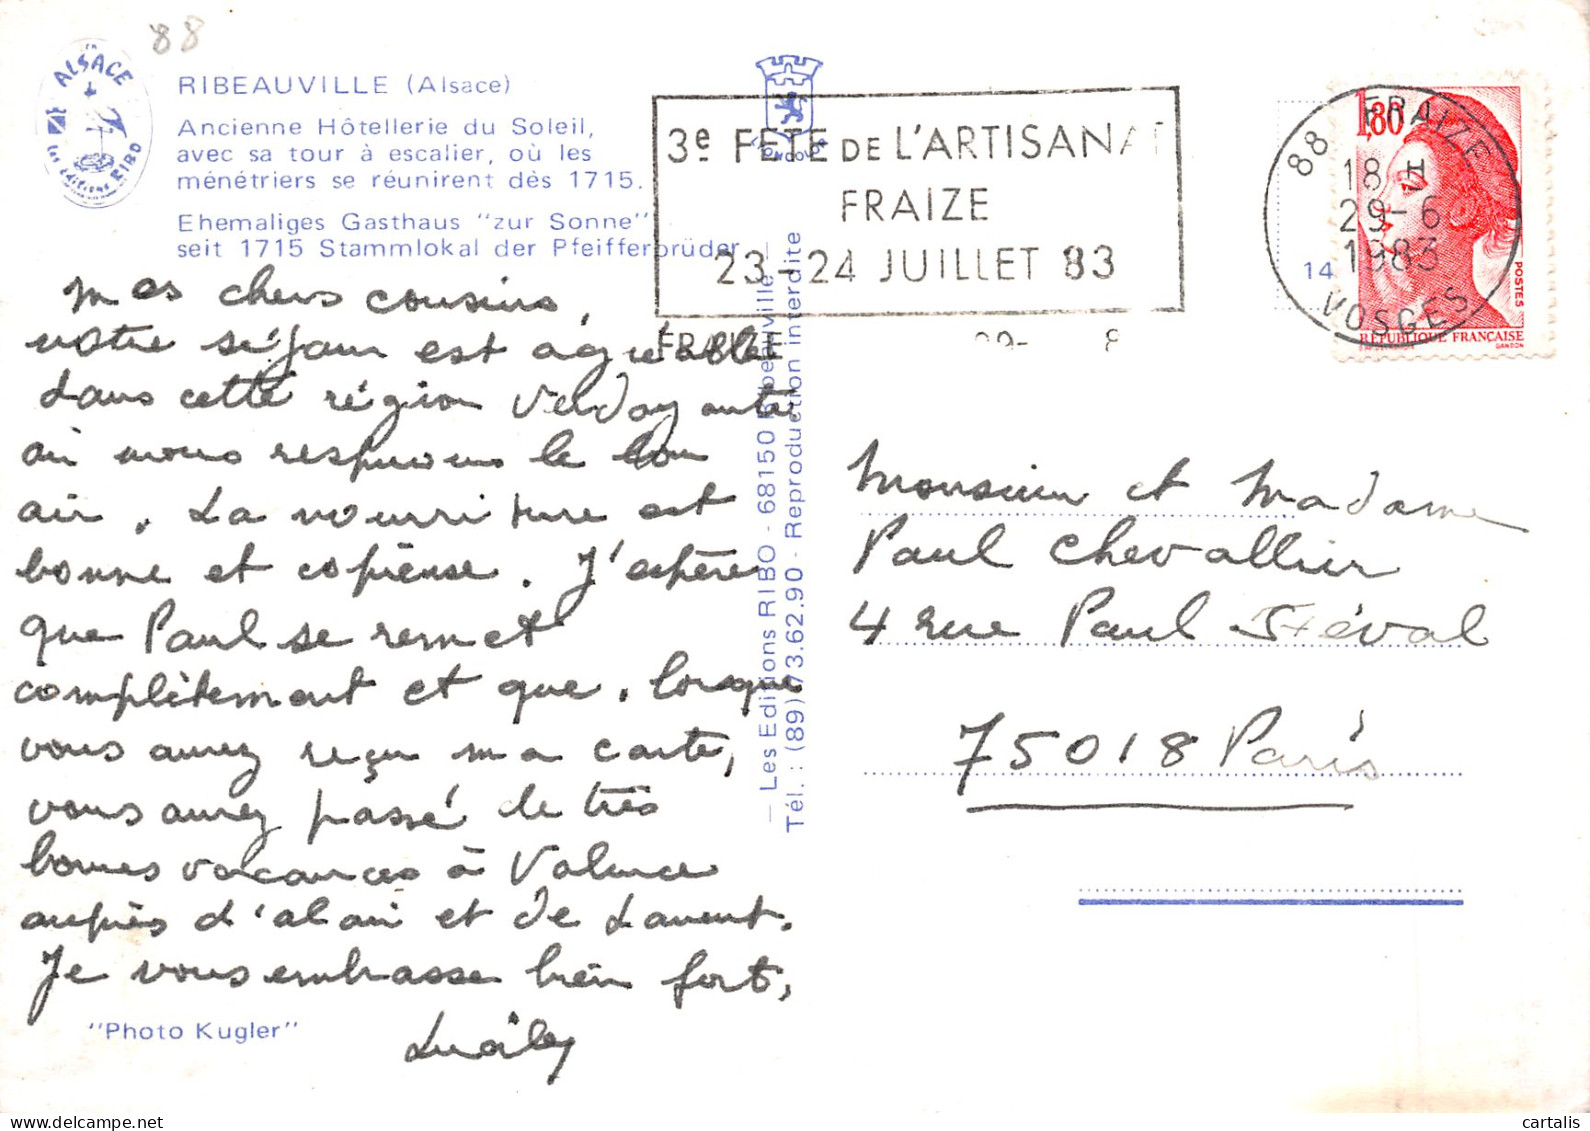 88
ALSACE
Les Editions RIBO
RIBEAUVILLE (Alsace)
Ancienne Hôtellerie du Soleil,
avec sa tour à escalier, où les
ménétriers se réunirent dès 1715.
Ehemaliges Gasthaus "zur Sonne"
seit 1715 Stammlokal der Pfeifferbrüder
3e FETE DE L'ARTISANAT
FRAIZE
23-24 JUILLET 83
FRAIZE
88 FRAIZE
18 H
29-6
1983
VOSGES
1,80
POSTES
RÉPUBLIQUE FRANÇAISE
GANDON
14
mes chers cousins,
votre séjour est agréable
dans cette région verdoyante
où nous respirons le bon
air. La nourriture est
bonne et copieuse. J'espère
que Paul se remet
complètement et que, lorsque
vous aurez reçu ma carte,
vous aurez passé de très
bonnes vacances à Valence
auprès d'alain et de Laurent.
Je vous embrasse bien fort,
"Photo Kugler"
— Les Editions RIBO - 68150 Ribeauvillé —
Tél. : (89) 73.62.90 - Reproduction interdite
Monsieur et Madame
Paul Chevallier
4 rue Paul Féval
75018 Paris